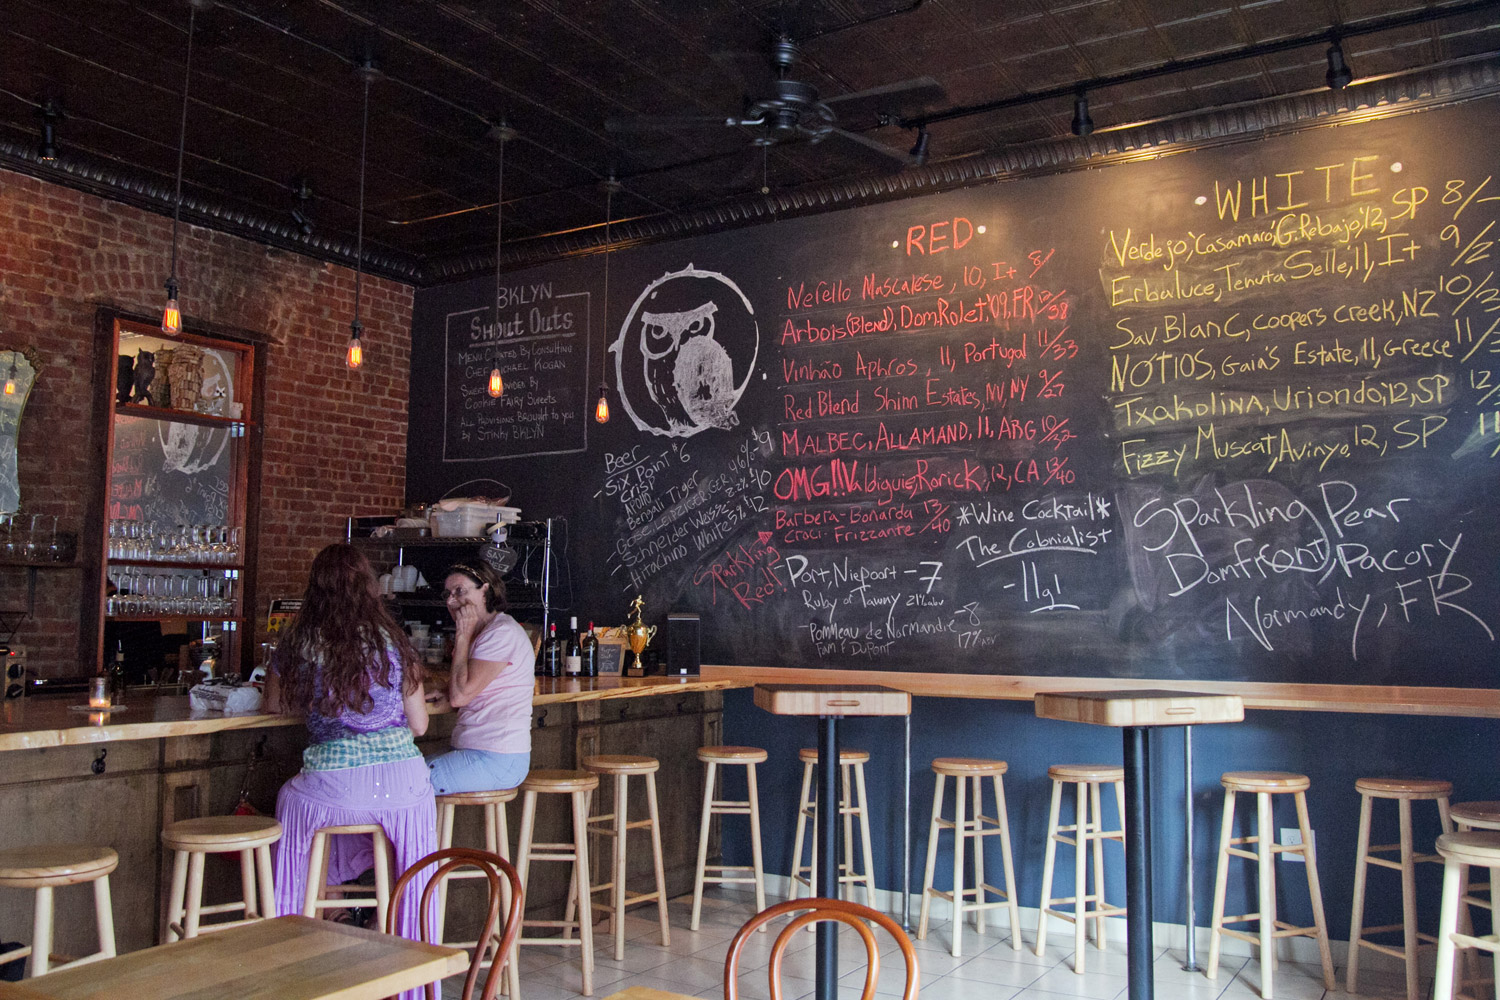 BKLYN
Shout Outs
MENU CURATED BY CONSULTING
CHEF MICHAEL KOGAN
SWEETS PROVIDED BY
COOKIE FAIRY SWEETS
ALL PROVISIONS BROUGHT TO YOU
BY STINKY BKLYN
Beer
-Six Point $6
Crisp
Apollo
Bengali Tiger
-Schneider Weisse
-Hitachino White 5% $12
• RED •
Nerello Mascalese, 10, I+ 8/
Arbois (Blend), Dom.Rolet, '09, FR 10/38
Vinhão Aphros, 11, Portugal 11/33
Red Blend Shinn Estates, NV, NY 9/27
MALBEC, ALLAMAND, 11, ARG
OMG!! Valdiguié, Rorick, 12, CA 13/40
Barbera-Bonarda 13/40
Croci-Frizzante
Sparkling
Red!!
-Port, Niepoort -7
Ruby or Tawny 21% abv
-Pommeau de Normandie -8
Fam. Dupont 17% ABV
*Wine Cocktail*
The Colonialist
-11gl
• WHITE •
Verdejo, 'Casamaro', G. Rebajo, '12, SP 8/
Erbaluce, Tenuta Selle, 11, I+ 9/2
Sav Blanc, Coopers Creek, NZ 10/3
NOTIOS, Gaia's Estate, 11, Greece 11/3
Txakolina, Uriondo, '12, SP 12/
Fizzy Muscat, Avinyo, 12, SP 11
Sparkling Pear
Domfront, Pacory
Normandy, FR